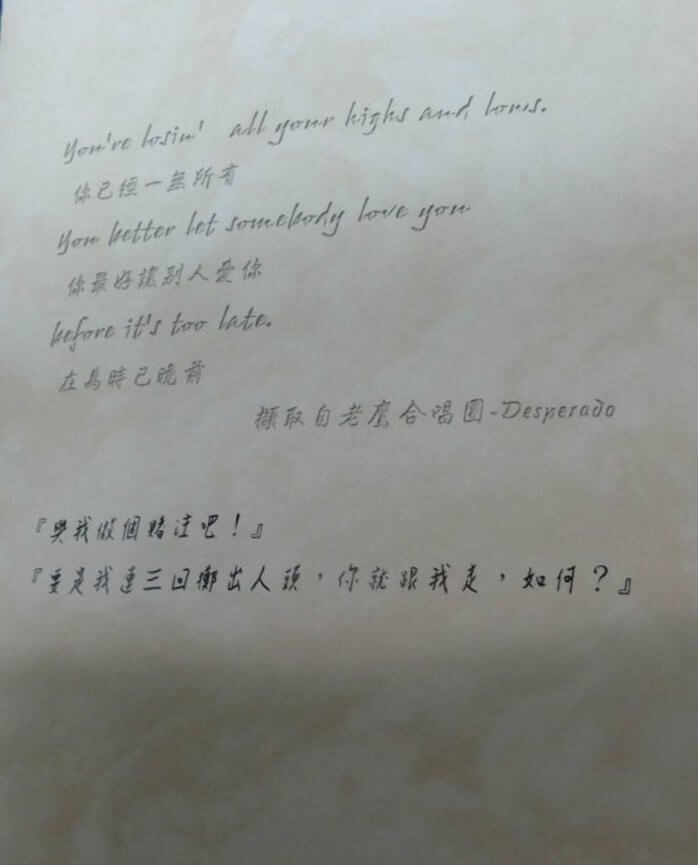 You're losin' all your highs and lows.
你已經一無所有
You better let somebody love you
你最好讓别人愛你
before it's too late.
在為時已晚前
擷取自老鷹合唱團-Desperado
『與我做個賭注吧！』
『要是我連三回擲出人頭，你就跟我走，如何？』